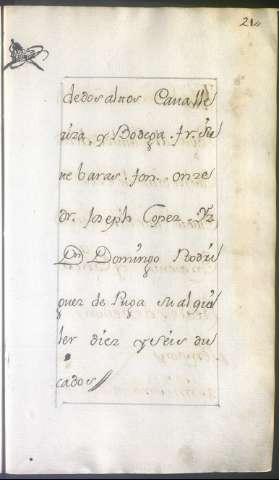 214
de dos altos Cavalle
riza, y Bodega. fr. sie
ne baras. fon. onze
dr. Joseph Copez. Yz
Dn Domingo Rodri
guez de Puga su alqui
ler diez y seis du
cados